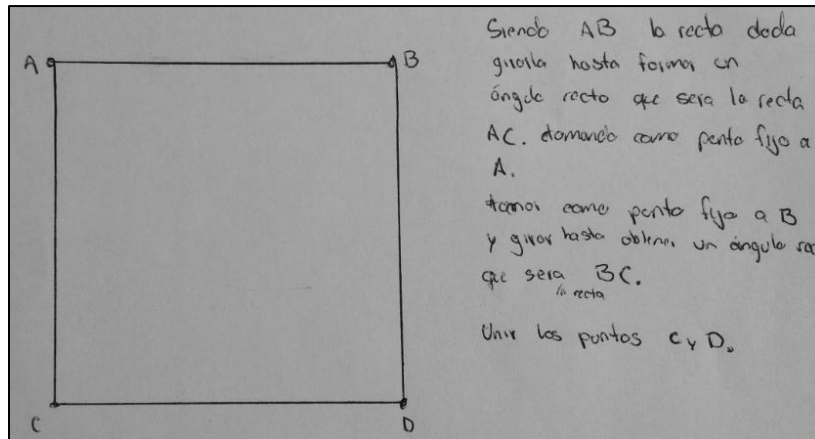 A
B
C
D
Siendo AB la recta dada
girarla hasta formar un
ángulo recto que sera la recta
AC. tomando como punto fijo a
A.
tomar como punto fijo a B
y girar hasta obtener un ángulo
que sera la recta BC.
Unir los puntos C y D.